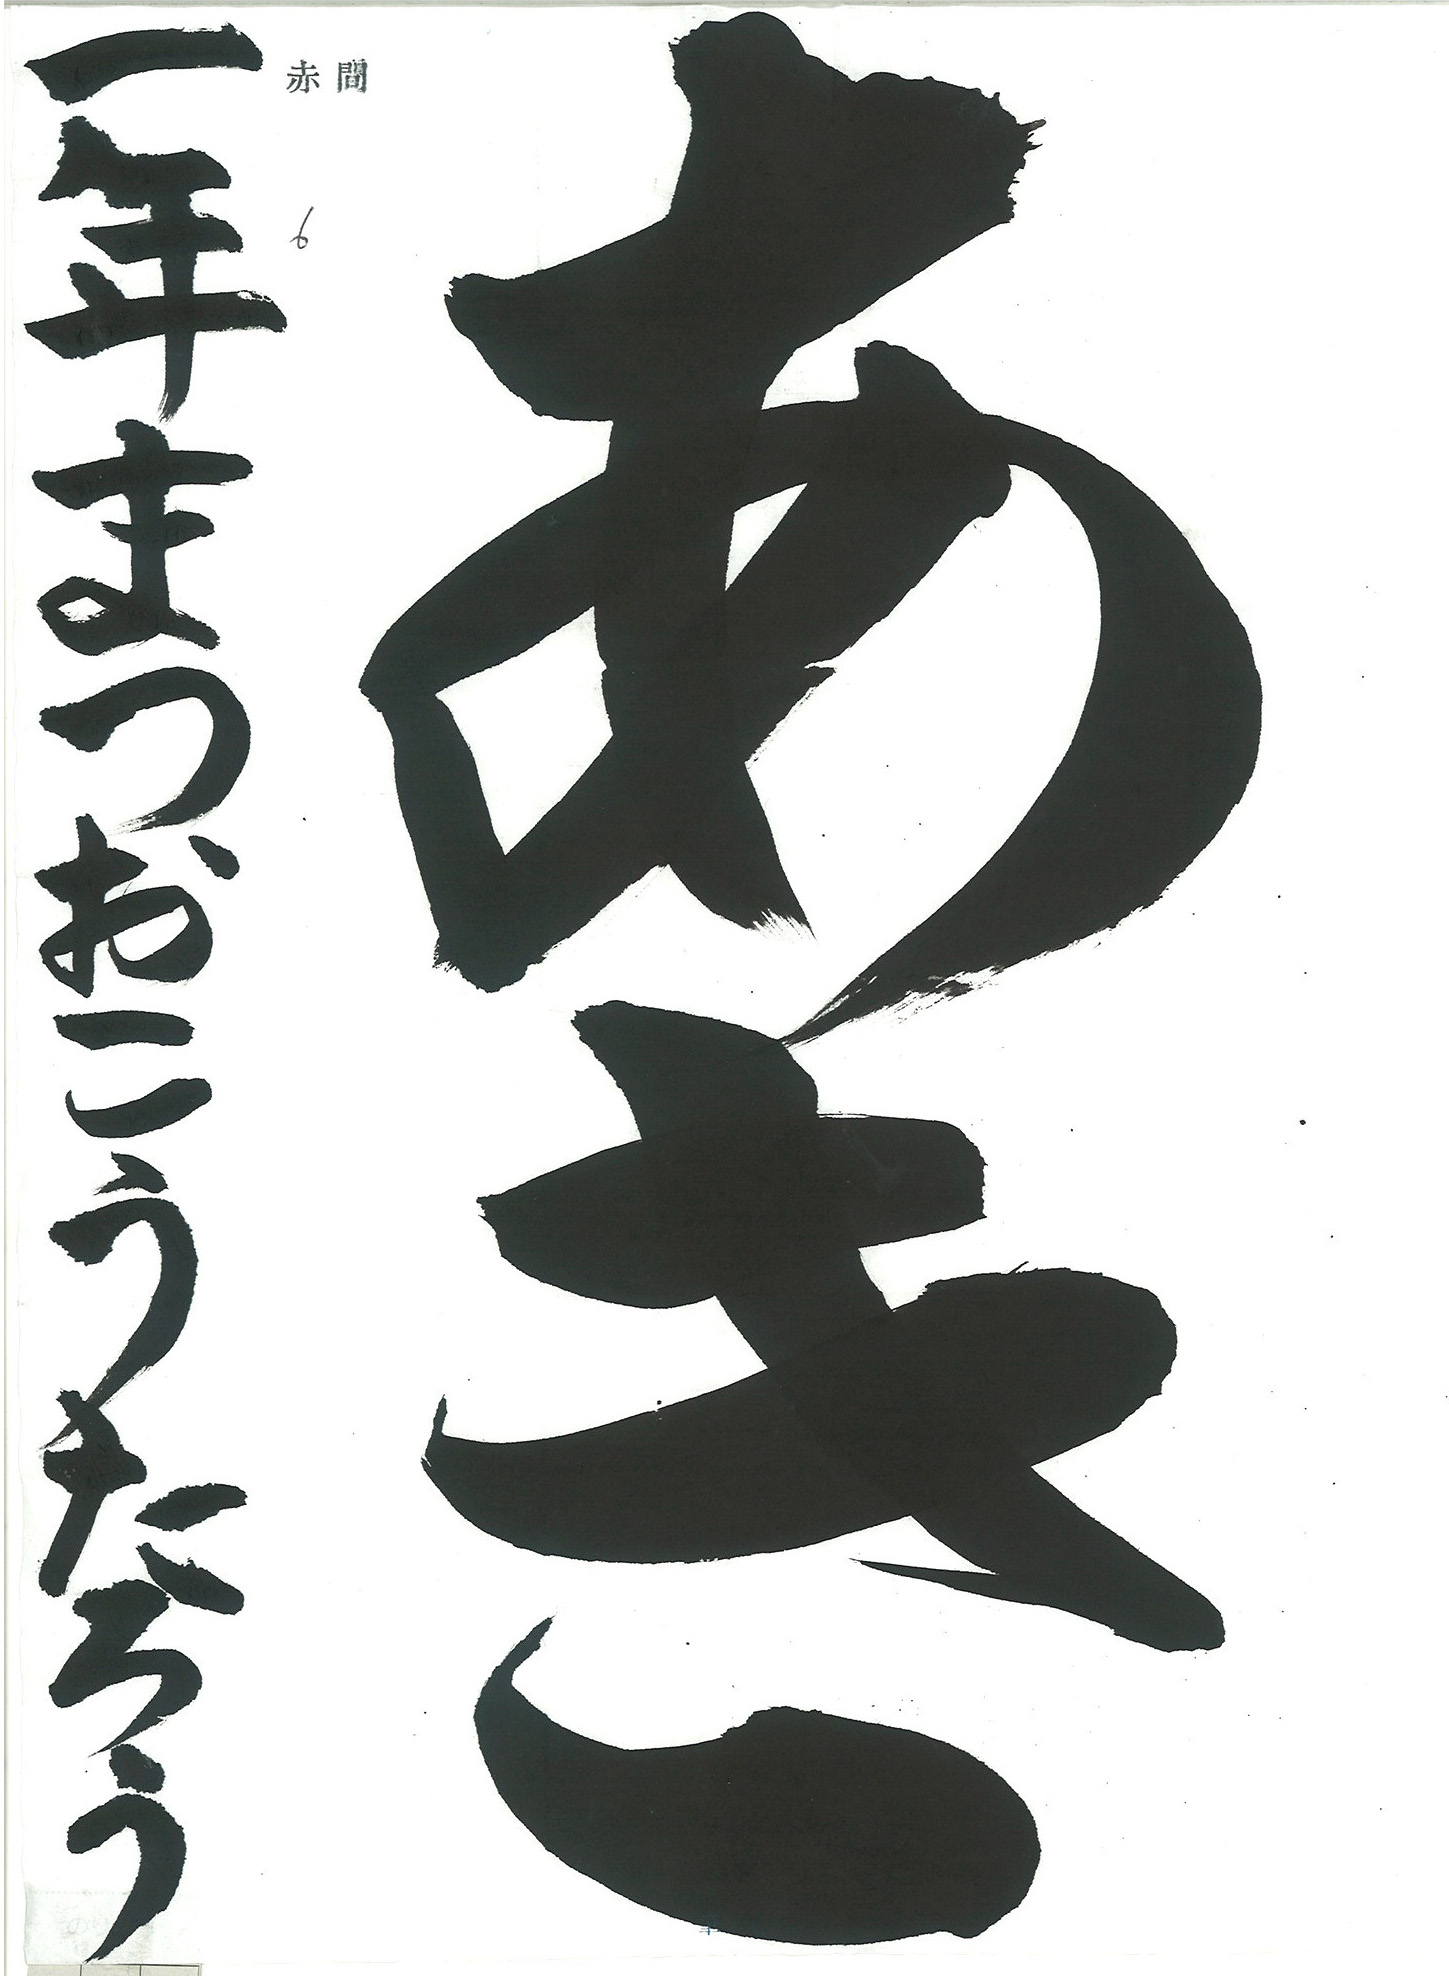 あき
赤間
6
一年まつおこうたろう